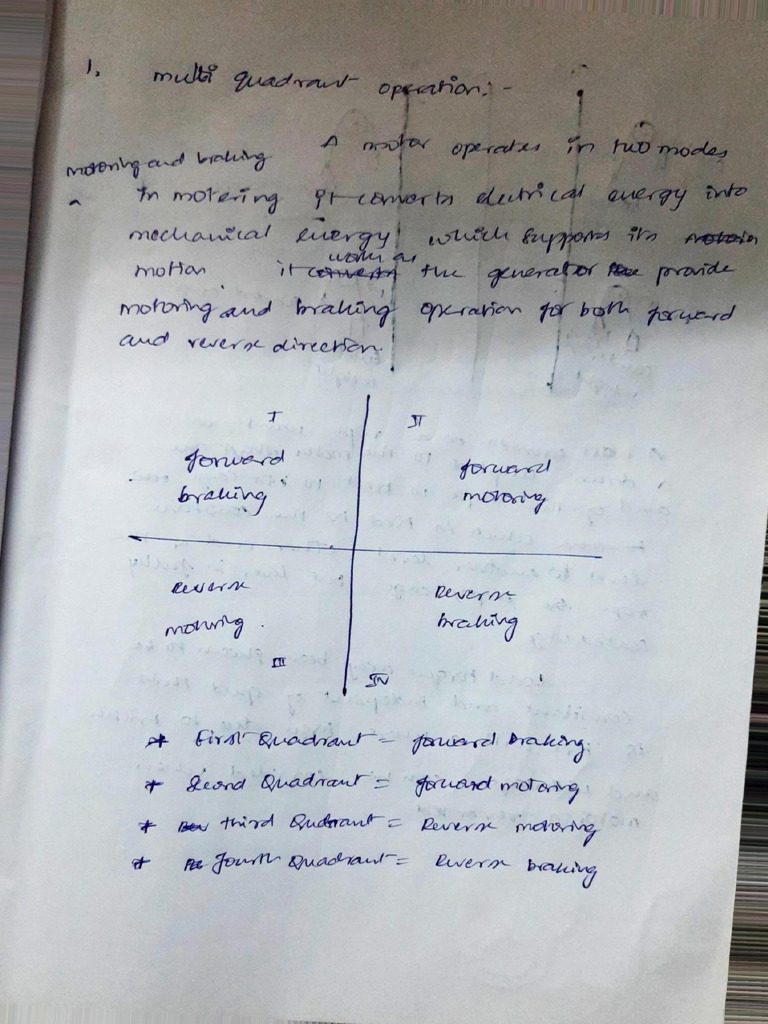 1. multi quadrant operation:-
A motor operates in two modes
motoring and braking
In motering it converts electrical energy into
mechanical energy which supports its
motion it work as the generator provide
motoring and braking operation for both forward
and reverse direction.
I II
forward braking
forward motoring
reverse motoring
Reverse braking
III
IV
* First Quadrant = forward braking
* Second Quadrant = forward motoring
* third Qudrant = Reverse motoring
* fourth Quadrant = Reverse braking